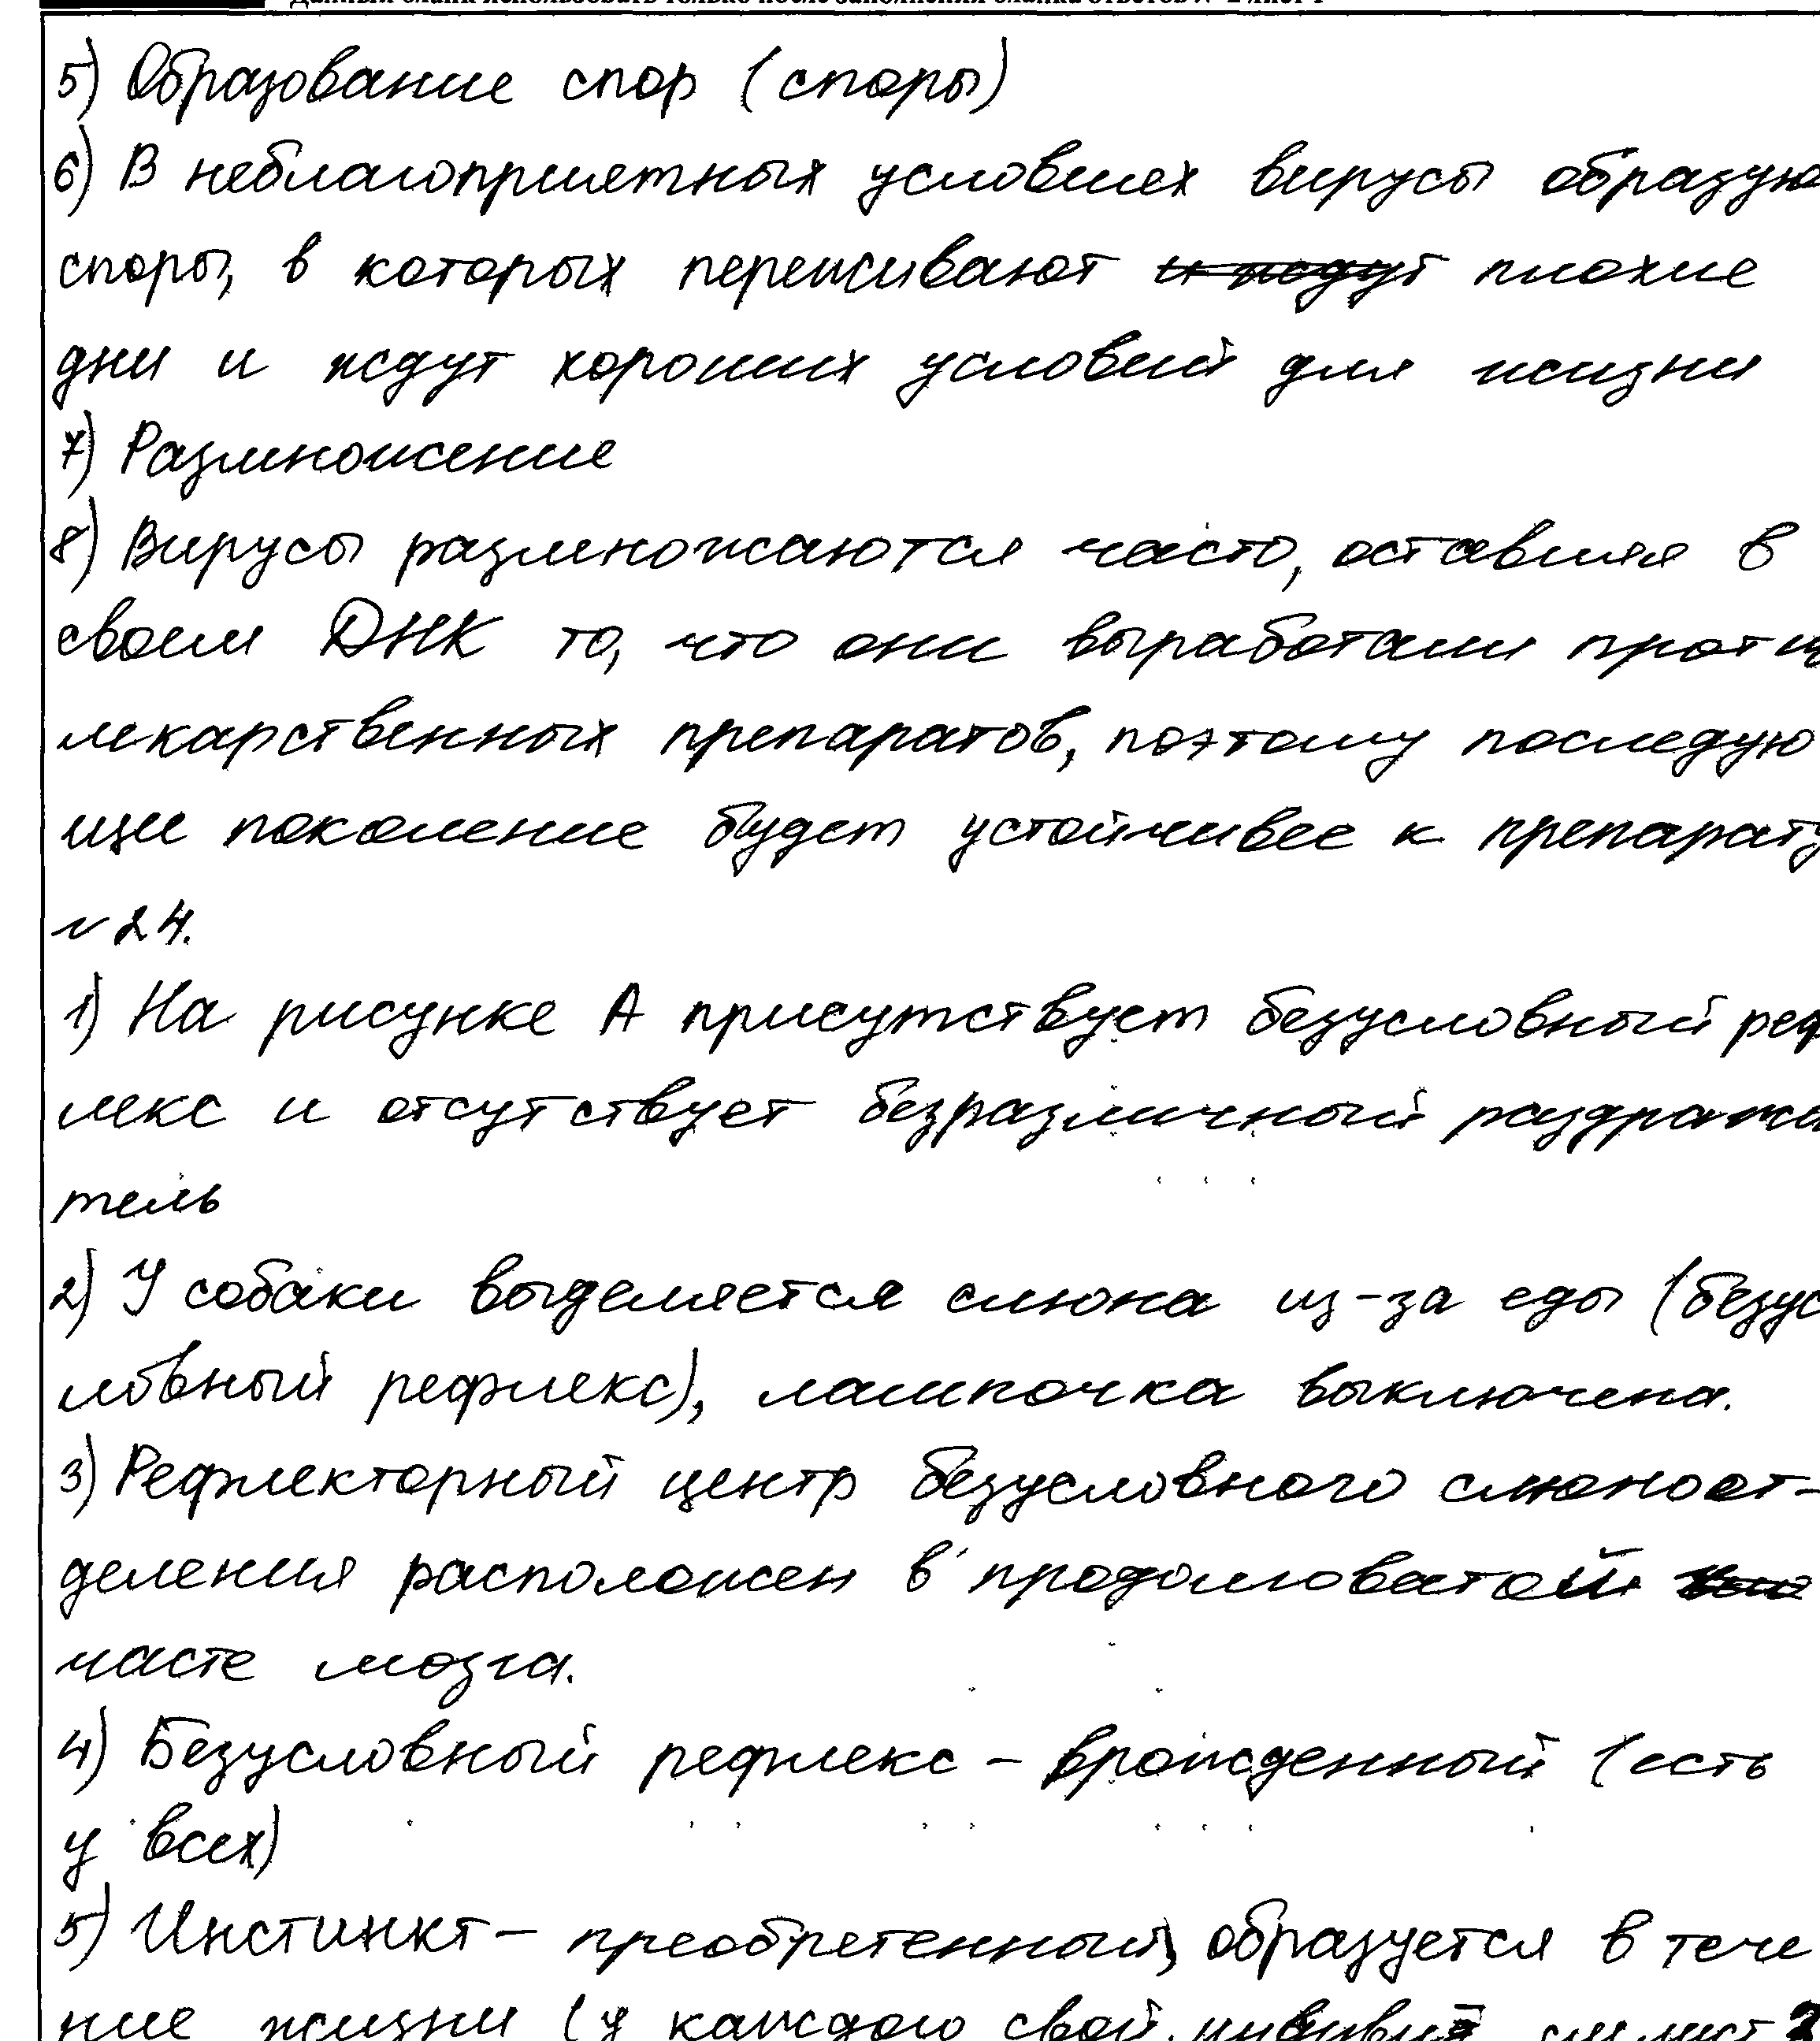 5) Образование спор (споры)
6) В неблагоприятных условиях вирусы образую
споры, в которых переживают и ждут плохие
дни и ждут хороших условий для жизни
7) Размножение
8) Вирусы размножаются часто, оставляя в
своем ДНК то, что они выработали проти
лекарственных препаратов, поэтому последую
щие поколение будет устойчивее к препарату
№24.
1) На рисунке А присутствует безусловный реф
лекс и отсутствует безразличный раздражи
тель
2) У собаки выделяется слюна из-за еды (безус
ловный рефлекс), лампочка выключена.
3) Рефлекторный центр безусловного слюноот-
деления расположен в продолговатой
часте мозга.
4) Безусловный рефлекс – врожденный (есть
у всех)
5) Инстинкт – преобретенный, образуется в тече
ние жизни (у каждого свой,